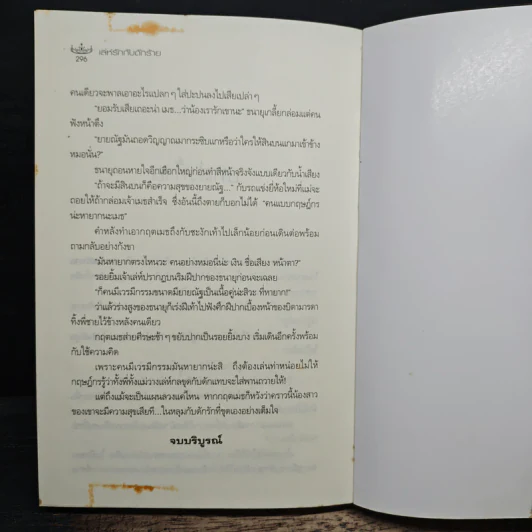 296
เล่ห์รักกับดักร้าย
คนเดียวจะพาลเอาอะไรแปลก ๆ ใส่ปะปนลงไปเสียเปล่า ๆ
"ยอมรับเสียเถอะน่า เมธ...ว่าน้องเรารักเขานะ" ชนายุเกลี้ยกล่อมแต่คน
ฟังหน้าตึง
"ยายณัฐมันถอดวิญญาณมากระซิบแกหรือว่าใครให้สินบนแกมาเข้าข้าง
หมอนั่น?"
ชนายุถอนหายใจอีกเฮือกใหญ่ก่อนทำสีหน้าจริงจังแบบเดียวกับน้ำเสียง
"ถ้าจะมีสินบนก็คือความสุขของยายณัฐ..." กับรถแข่งยี่ห้อใหม่ที่แม่จะ
ถอยให้ถ้ากล่อมเจ้าเมธสำเร็จ ซึ่งอันนี้ถึงตายก็บอกไม่ได้ "คนแบบกฤษฎิ์กร
น่ะหายากนะเมธ"
คำหลังทำเอากฤตเมธถึงกับชะงักเท้าไปเล็กน้อยก่อนเดินต่อพร้อม
ถามกลับอย่างกังขา
"มันหายากตรงไหนวะ คนอย่างหมอนี่น่ะ เงิน ชื่อเสียง หน้าตา?"
รอยยิ้มเจ้าเล่ห์ปรากฏบนริมฝีปากของชนายุก่อนจะเฉลย
"ก็คนมีเวรมีกรรมขนาดมียายณัฐเป็นเนื้อคู่น่ะสิวะ ที่หายาก!"
ว่าแล้วร่างสูงของชนายุก็เร่งฝีเท้าไปฟังศึกฝีปากเบื้องหน้าของบิดามารดา
ทิ้งพี่ชายไว้ข้างหลังคนเดียว
กฤตเมธส่ายศีรษะช้า ๆ ขยับปากเป็นรอยยิ้มบาง เริ่มเดินอีกครั้งพร้อม
กับใช้ความคิด
เพราะคนมีเวรมีกรรมมันหายากน่ะสิ... ถึงต้องเล่นท่าหน่อยไม่ให้
กฤษฎิ์กรรู้ว่าทั้งพี่ทั้งแม่วางเล่ห์กลขุดกับดักแทบจะใส่พานถวายให้!
แต่ถึงแม้จะเป็นแผนลวงแค่ไหน หากกฤตเมธก็หวังว่าคราวนี้น้องสาว
ของเขาจะมีความสุขเสียที...ในหลุมกับดักรักที่ขุดเองอย่างเต็มใจ
จบบริบูรณ์